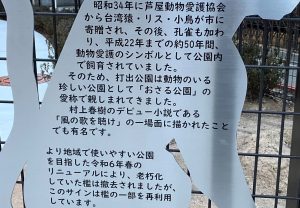 昭和34年に芦屋動物愛護協会
から台湾猿・リス・小鳥が市に
寄贈され、その後、孔雀も加わ
り、平成22年までの約50年間、
動物愛護のシンボルとして公園内
で飼育されていました。
そのため、打出公園は動物のいる
珍しい公園として「おさる公園」の
愛称で親しまれてきました。
村上春樹のデビュー小説である
「風の歌を聴け」の一場面に描かれたこと
でも有名です。
より地域で使いやすい公園
を目指した令和6年春の
リニューアルにより、老朽化
していた檻は撤去されましたが、
このサインは檻の一部を再利用
しています。